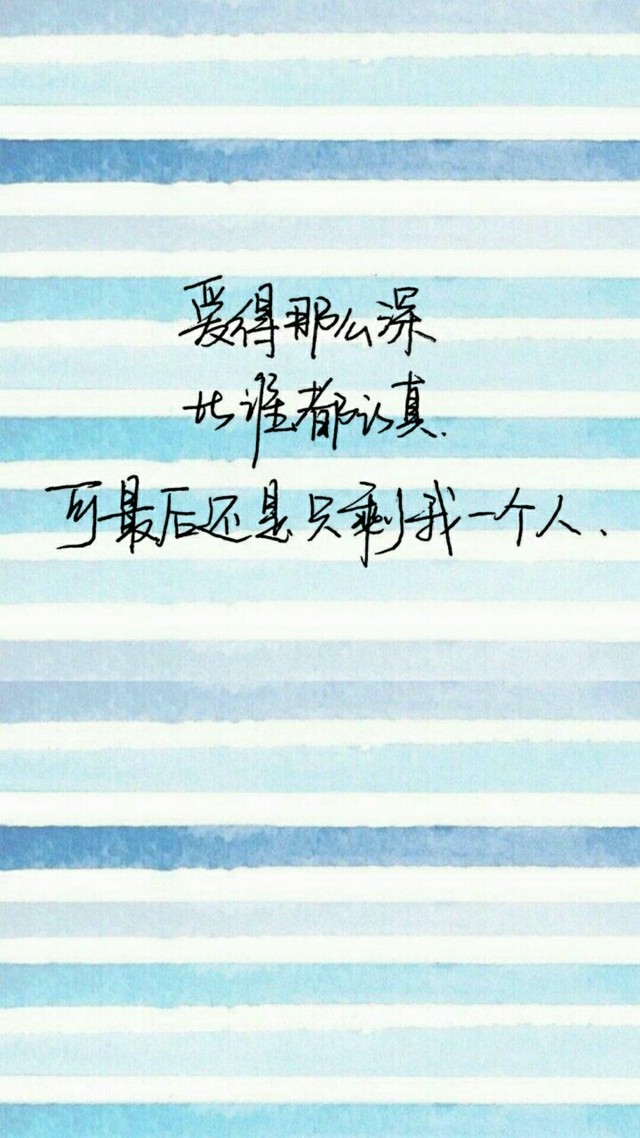 爱得那么深
比谁都认真.
可最后还是只剩我一个人、